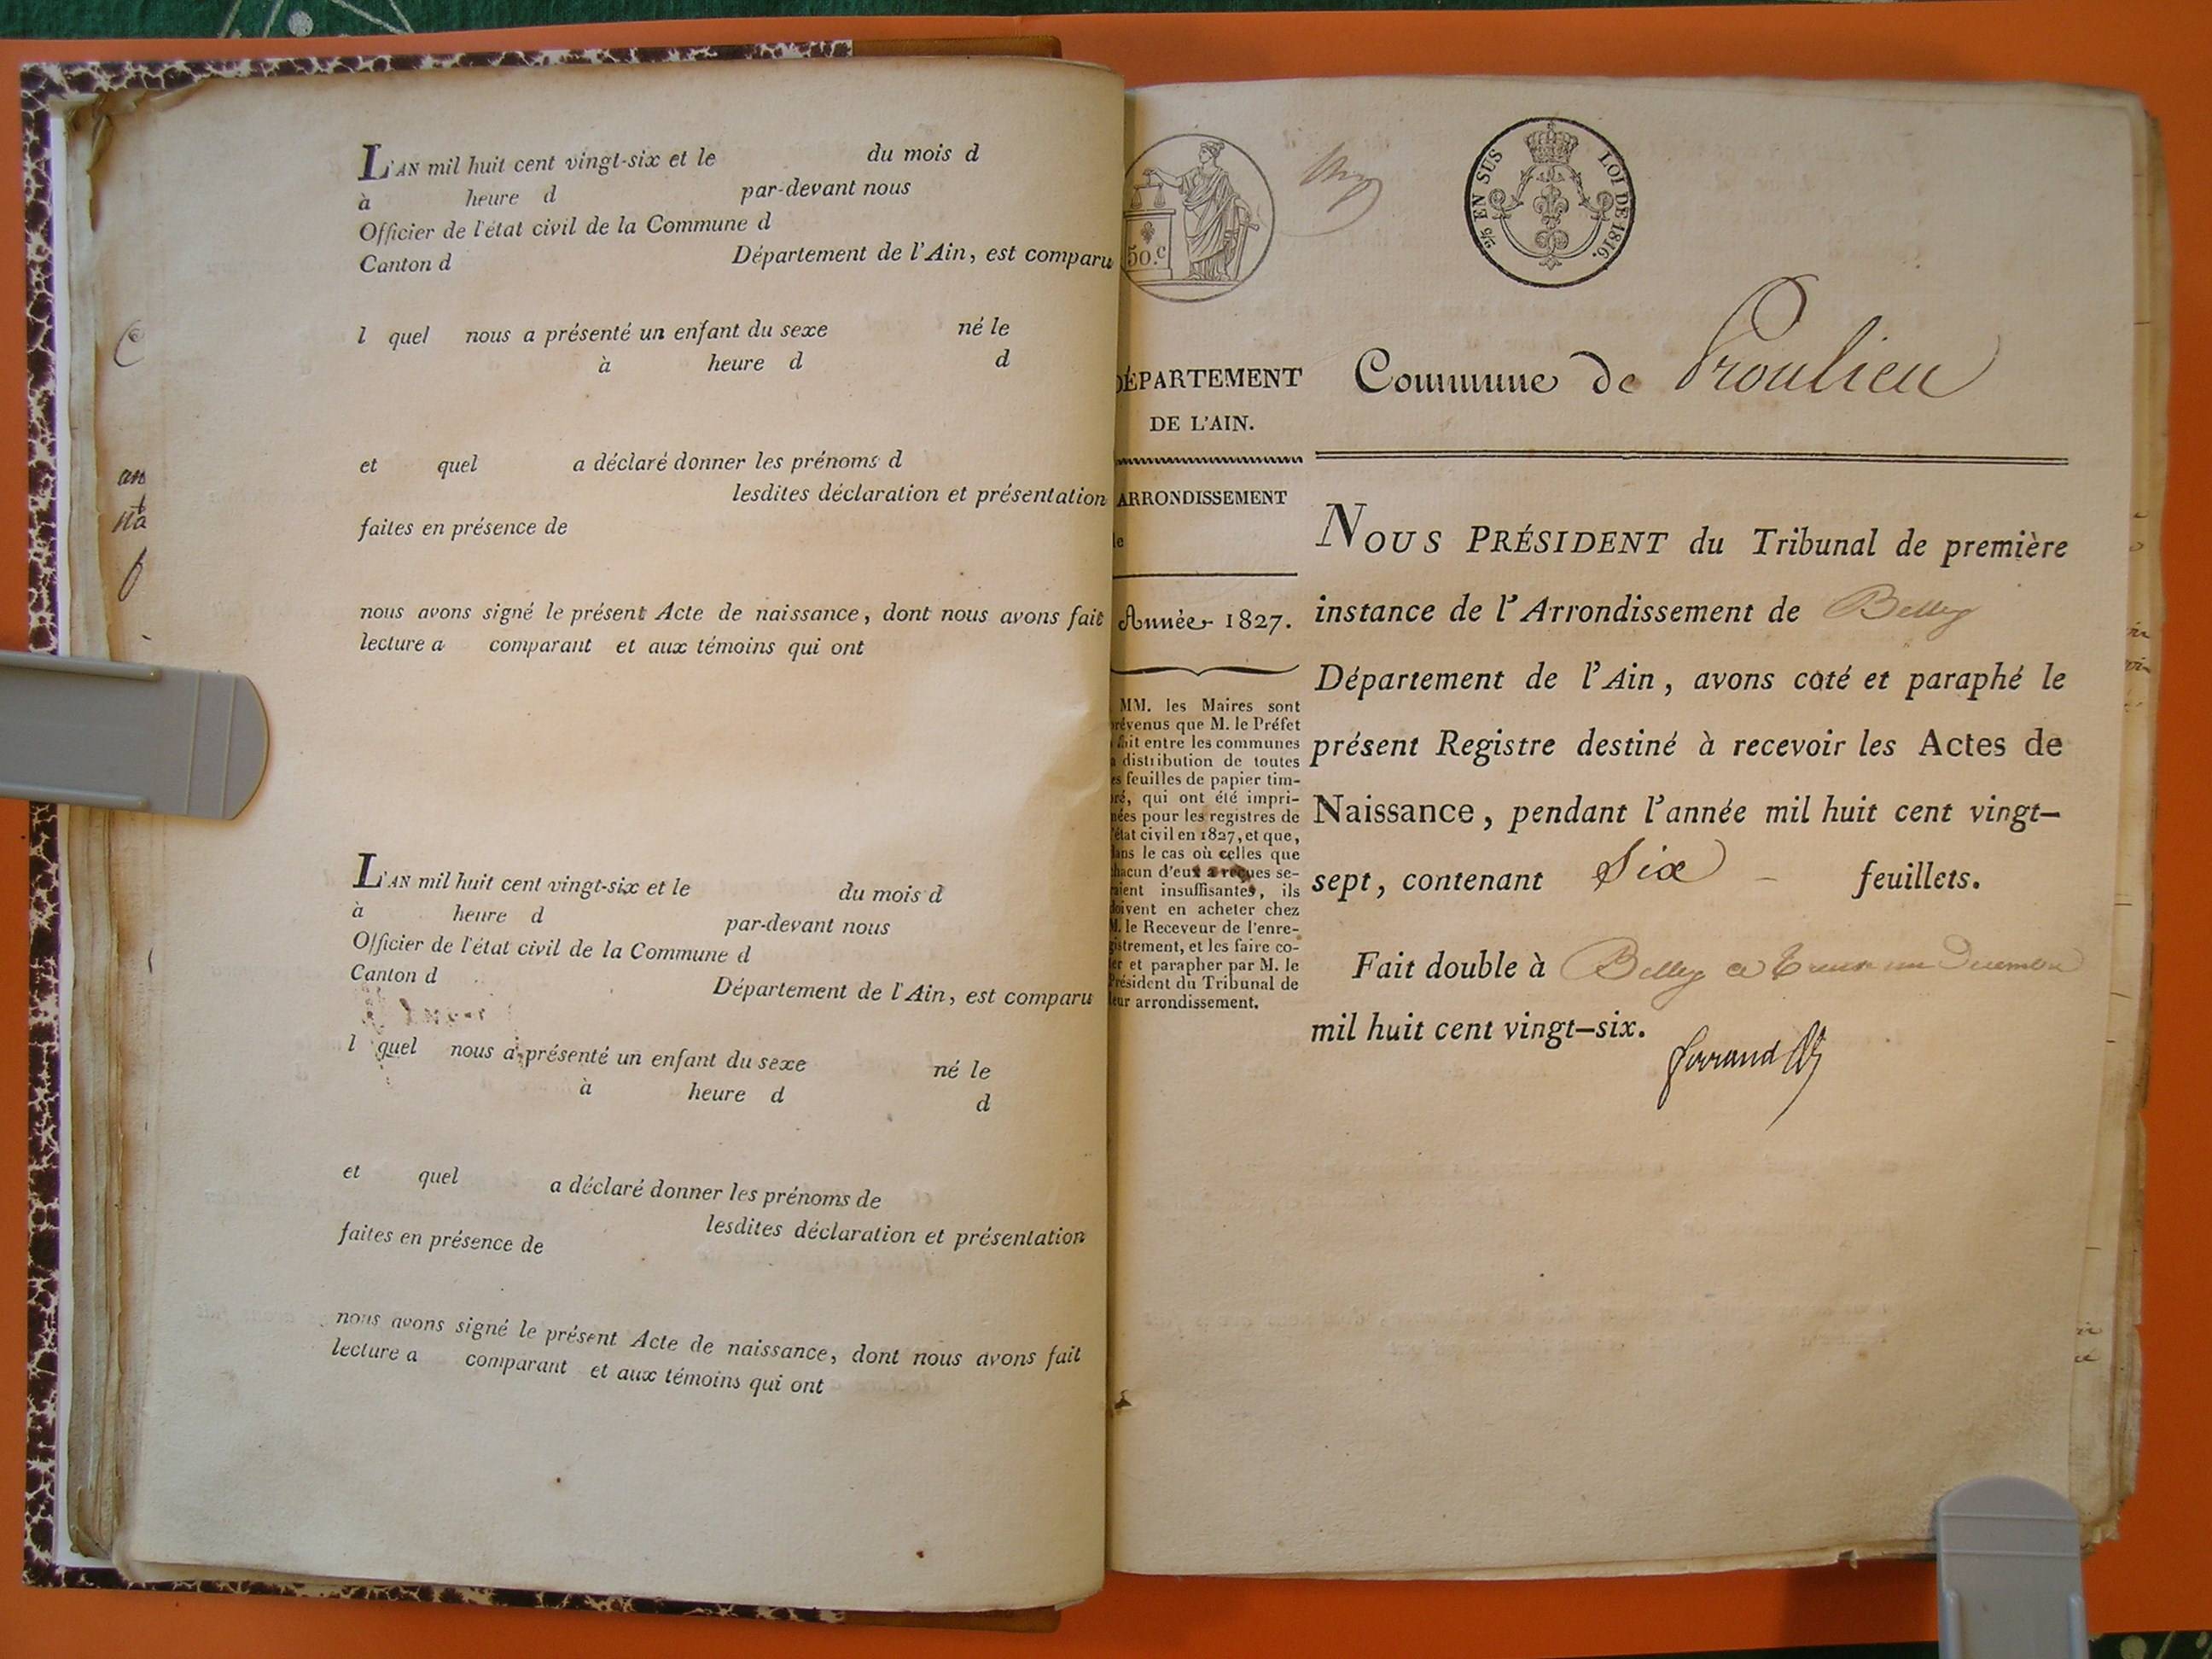 L'AN mil huit cent vingt-six et le du mois d
à heure d par-devant nous
Officier de l'état civil de la Commune d
Canton d Département de l'Ain, est comparu
l quel nous a présenté un enfant du sexe né le
à heure d d
et quel a déclaré donner les prénoms d
lesdites déclaration et présentation
faites en présence de
nous avons signé le présent Acte de naissance, dont nous avons fait
lecture a comparant et aux témoins qui ont
L'AN mil huit cent vingt-six et le du mois d
à heure d par-devant nous
Officier de l'état civil de la Commune d
Canton d Département de l'Ain, est comparu
l quel nous a présenté un enfant du sexe né le
à heure d d
et quel a déclaré donner les prénoms de
lesdites déclaration et présentation
faites en présence de
nous avons signé le présent Acte de naissance, dont nous avons fait
lecture a comparant et aux témoins qui ont
50.c
EN SUS LOI DE 1816.
DÉPARTEMENT
DE L'AIN.
ARRONDISSEMENT
Année 1827.
MM. les Maires sont
prévenus que M. le Préfet
fait entre les communes
distribution de toutes
feuilles de papier tim-
bré, qui ont été impri-
mées pour les registres de
l'état civil en 1827, et que,
dans le cas où celles que
chacun d'eux a reçues se-
raient insuffisantes, ils
doivent en acheter chez
M. le Receveur de l'enre-
gistrement, et les faire co-
ter et parapher par M. le
Président du Tribunal de
leur arrondissement.
Commune de Proulieu
NOUS PRÉSIDENT du Tribunal de première
instance de l'Arrondissement de Belley
Département de l'Ain, avons coté et paraphé le
présent Registre destiné à recevoir les Actes de
Naissance, pendant l'année mil huit cent vingt-
sept, contenant Six feuillets.
Fait double à Belley ce trente un Decembre
mil huit cent vingt-six.